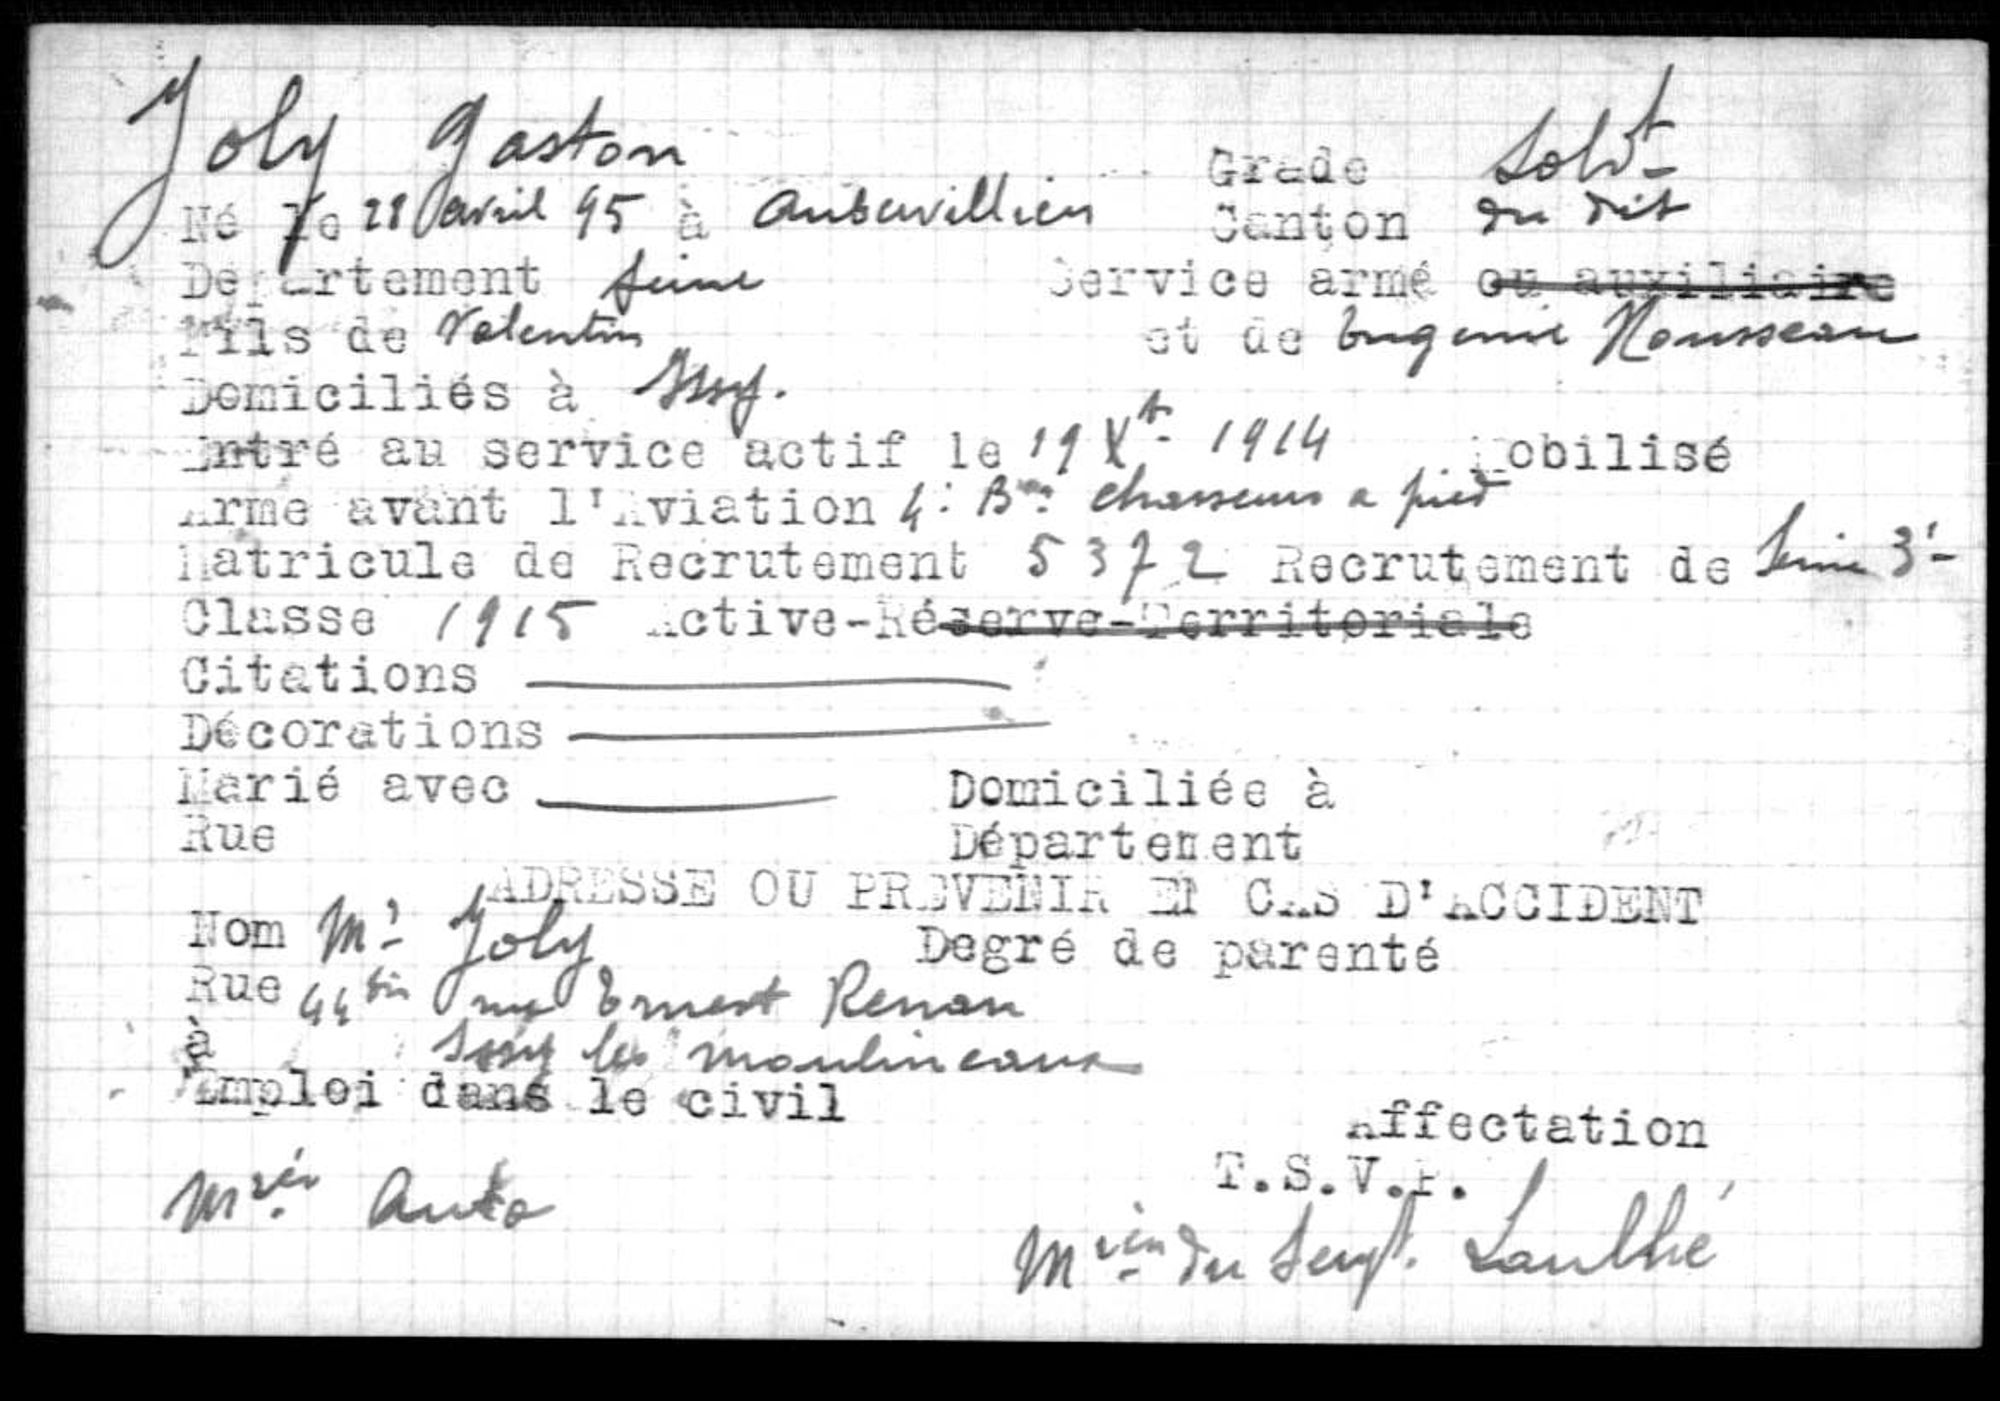 Joly Gaston
Grade Soldt
Né le 28 avril 95 à Aubervilliers
Canton du dit
Département Seine
Service armé ou auxiliaire
Fils de Valentin et de Eugenie Rousseau
Domiciliés à Issy.
Entré au service actif le 19 Xbr 1914 Mobilisé
Arme avant l'Aviation 4e Bon chasseurs a pied
Matricule de Recrutement 5372 Recrutement de Seine 3e
Classe 1915 Active-Réserve-Territoriale
Citations
Décorations
Marié avec Domiciliée à
Rue Département
ADRESSE OU PREVENIR EN CAS D'ACCIDENT
Nom Mr Joly Degré de parenté
Rue 44 bis rue Ernest Renan
à Issy les moulineaux
Emploi dans le civil
Affectation
T.S.V.P.
Mcien Auto
Mcien du Sergt. Laulhé